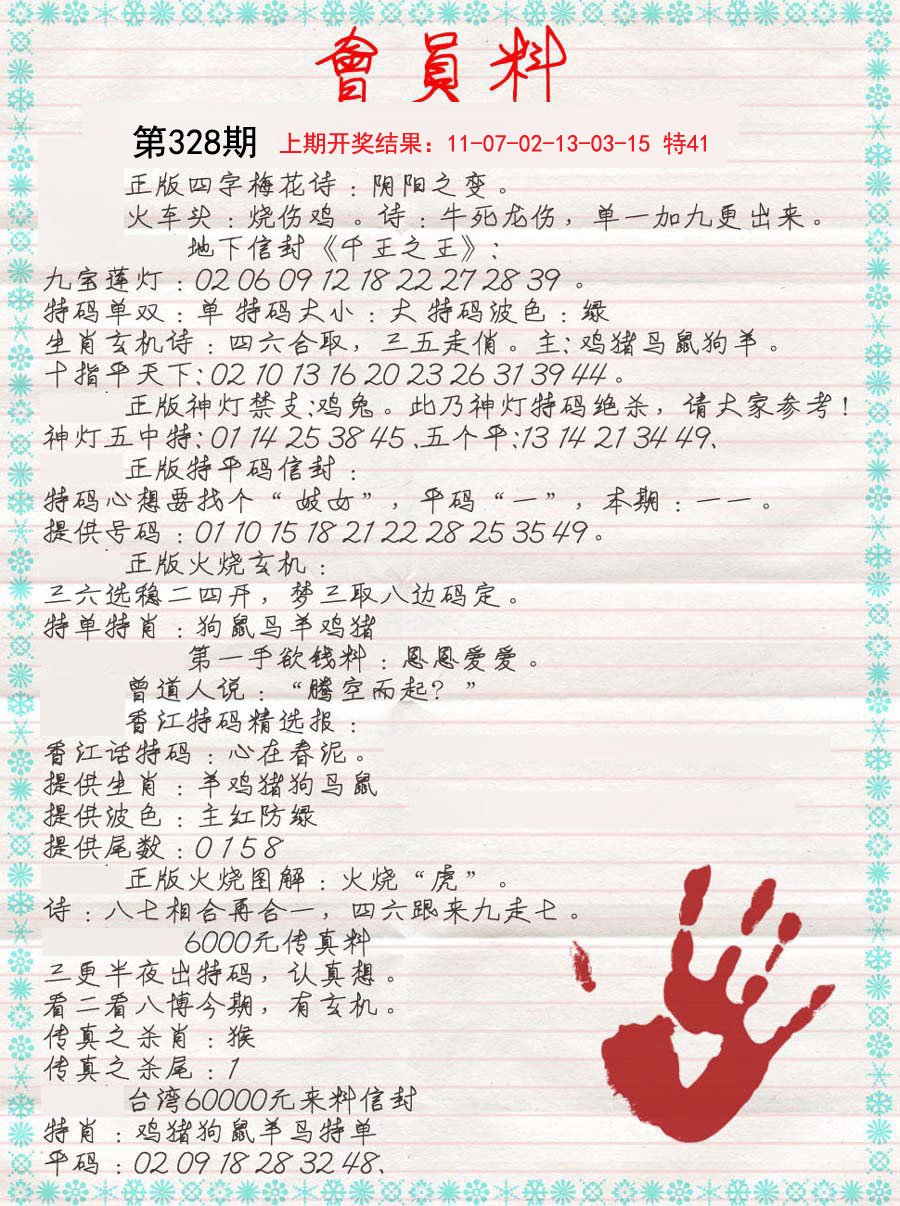 會員料
第328期 上期开奖结果：11-07-02-13-03-15 特41
正版四字梅花诗：阴阳之变。
火车头：烧伤鸡。诗：牛死龙伤，单一加九更出来。
地下信封《千王之王》：
九宝莲灯：02 06 09 12 18 22 27 28 39。
特码单双：单 特码大小：大 特码波色：绿
生肖玄机诗：四六合取，三五走俏。主：鸡猪马鼠狗羊。
十指平天下：02 10 13 16 20 23 26 31 39 44。
正版神灯禁支：鸡兔。此乃神灯特码绝杀，请大家参考！
神灯五中特：01 14 25 38 45、五个平：13 14 21 34 49、
正版特平码信封：
特码心想要找个“妓女”，平码“一”，本期：一一。
提供号码：01 10 15 18 21 22 28 25 35 49。
正版火烧玄机：
三六选稳二四开，梦三取八边码定。
特单特肖：狗鼠马羊鸡猪
第一手欲钱料：恩恩爱爱。
曾道人说：“腾空而起？”
香江特码精选报：
香江话特码：心在春泥。
提供生肖：羊鸡猪狗马鼠
提供波色：主红防绿
提供尾数：0 1 5 8
正版火烧图解：火烧“虎”。
诗：八七相合再合一，四六跟来九走七。
6000元传真料
三更半夜出特码，认真想。
看二看八博今期，有玄机。
传真之杀肖：猴
传真之杀尾：1
台湾60000元来料信封
特肖：鸡猪狗鼠羊马特单
平码：02 09 18 28 32 48、